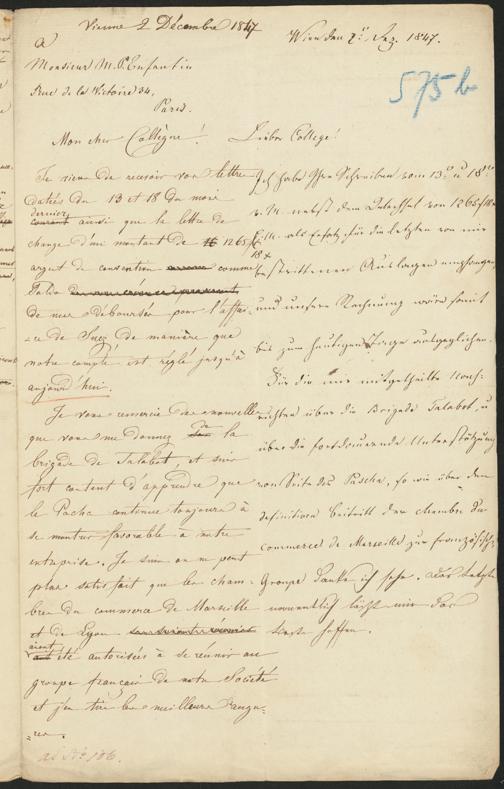 Vienne 2 Décembre 1847
à
Monsieur M. P. Enfantin
Rue de la Victoire 34.
Paris.
Mon cher Collègue!
Je viens de recevoir vos lettres
datées du 13 et 18 du mois
dernier
courant ainsi que la lettre de
change d'un montant de 1265 f
argent de convention comme
Solde
de mes débourses pour l'affai-
re de Suez de manière que
notre compte est réglé jusqu'à
aujourd'hui.
Je vous remercie des nouvelles
que vous me donnez de la
brigade de Talabot et suis
fort content d'apprendre que
le Pacha continue toujours à
se montrer favorable à notre
entreprise. Je suis on ne peut
plus satisfait que les cham-
bres du commerce de Marseille
et de Lyon
aient
été autorisées à se réunir au
groupe français de notre Société
et j'en tire les meilleurs augu-
res.
ad No 106.
Wien den 2 Dez. 1847.
575 b
Lieber College!
Ich habe Ihre Schreiben vom 13 u 18
v. M. nebst dem von 1265 f
C. M. als Ersatz für die letzten von mir
18 x
bestrittenen Auslagen empfangen
und unsere Rechnung wäre somit
bis zum heutigen Tage ausgeglichen.
Für die mir mitgetheilten Nach-
richten über die Brigade Talabot, u
über die fortdauernde Unterstützung
von Seite des Pascha, so wie über den
definitiven Beitritt der chambre du
commerce de Marseille zur französisch.
Gruppe danke ich sehr. Das Letzte
namentlich läßt mir das
Beste hoffen.